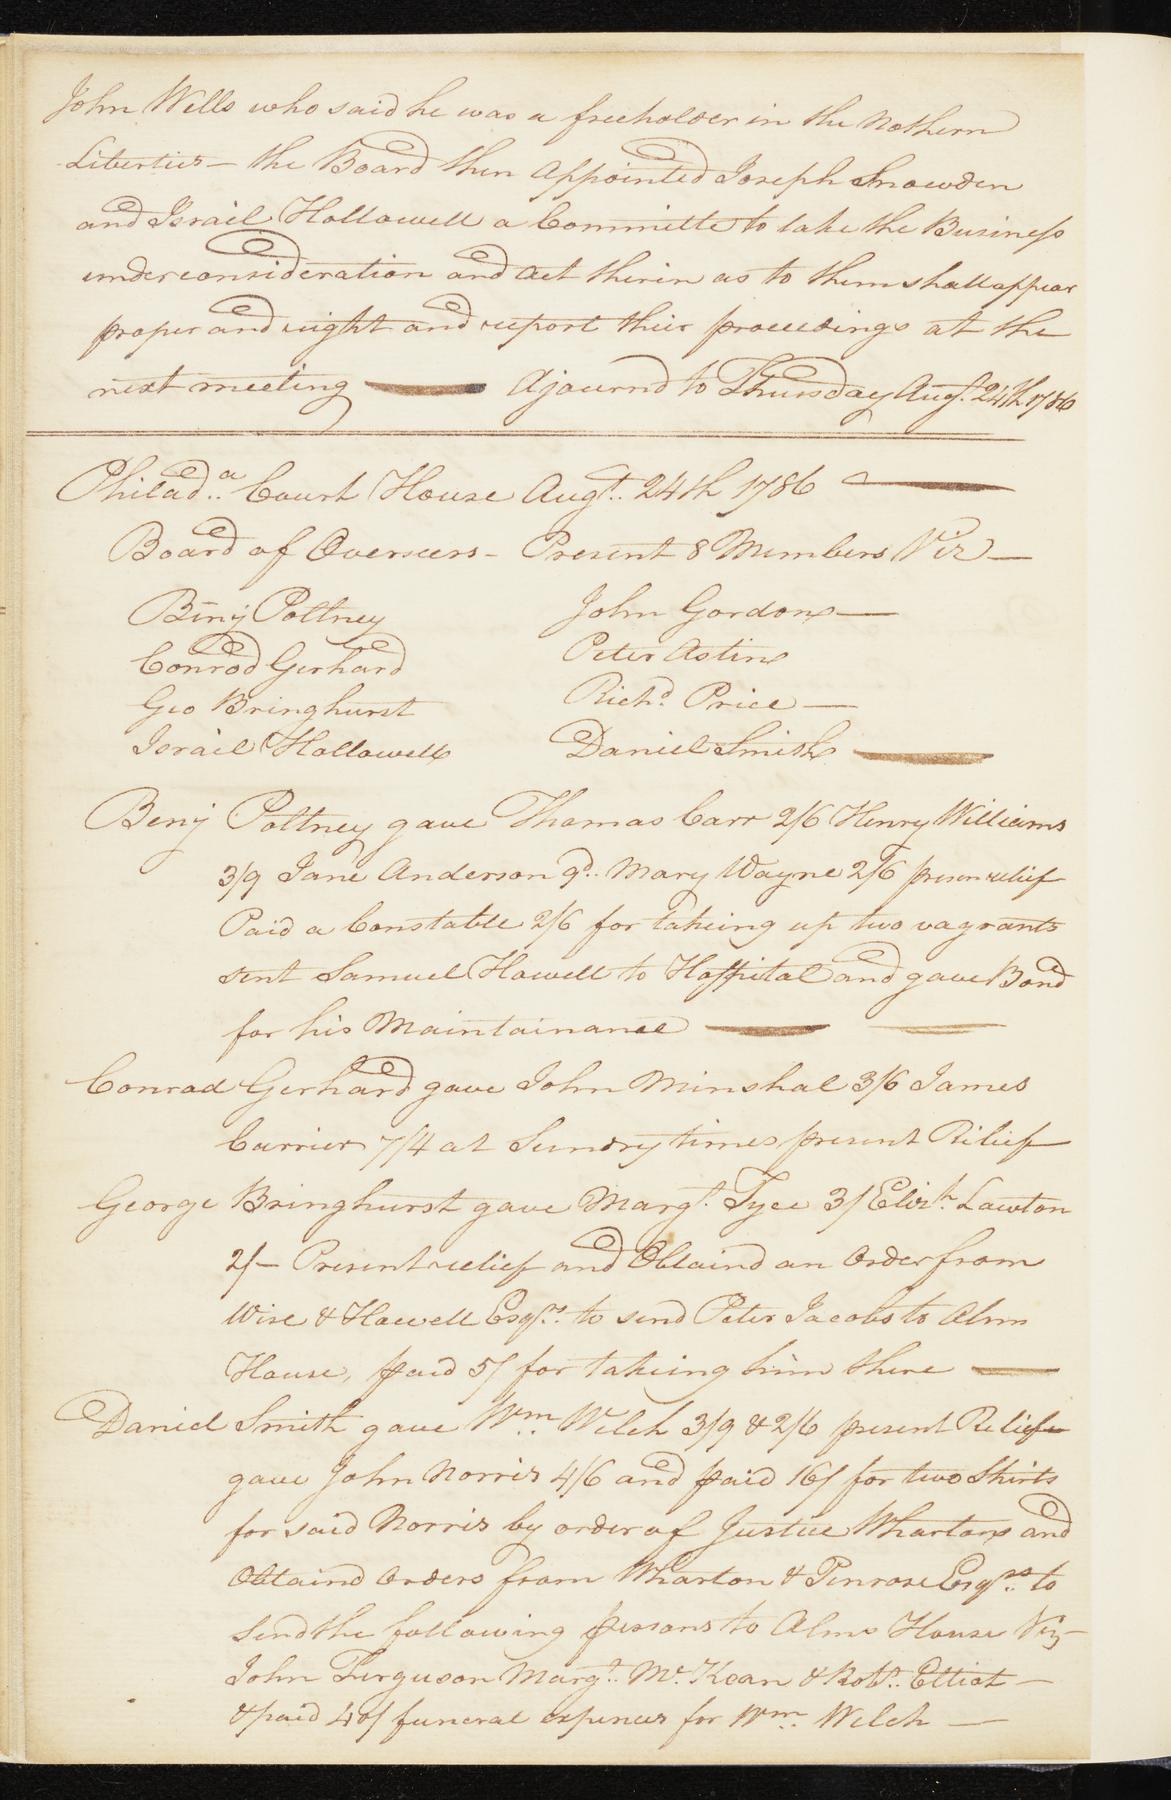 John Wells who said he was a freeholder in the Nothern
Liberties – the Board then Appointed Joseph Snowden
and Israil Hollowell a Committe to take the Business
under consideration and Act therin as to them shall appear
proper and right and report thier proceedings at the
next meeting — Ajournd to Thursday Augt. 24th 1786
Philada. Court House Augt. 24th 1786 —
Board of Overseers – Present 8 Members Viz –
Binj Poltney
John Gordon —
Conrod Gerhard
Peter Astin
Geo Bringhurst
Richd. Price —
Israil Hollowell
Daniel Smith —
Benj Poltney gave Thomas Carr 2/6 Henry Williams
3/9 Jane Anderson 9d. Mary Wayne 2/6 presen relief
Paid a Constable 2/6 for takeing up two vagrants
sent Samuel Howell to Hospital and gave Bond
for his Maintainance —
Conrad Gerhard gave John Minshal 3/6 James
Carrier 7/4 at Sundry times present Relief
George Bringhurst gave Margt. Tyce 3/ Elizh. Lawton
2/– Present relief and Obtaind an Order from
Wise & Howell Esqrs. to send Peter Jacobs to Alms
House, paid 5/ for takeing him there —
Daniel Smith gave Wm. Welch 3/9 & 2/6 present Relief
gave John Norris 4/6 and paid 16/ for two Shirts
for said Norris by order of Justice Wharton and
Obtaind Orders from Wharton & Penrose Esqrs. to
send the following persons to Alms House Viz –
John Ferguson Margt. Mc. Kean & Robt. Elliot –
& paid 40/ funeral expences for Wm. Welch —